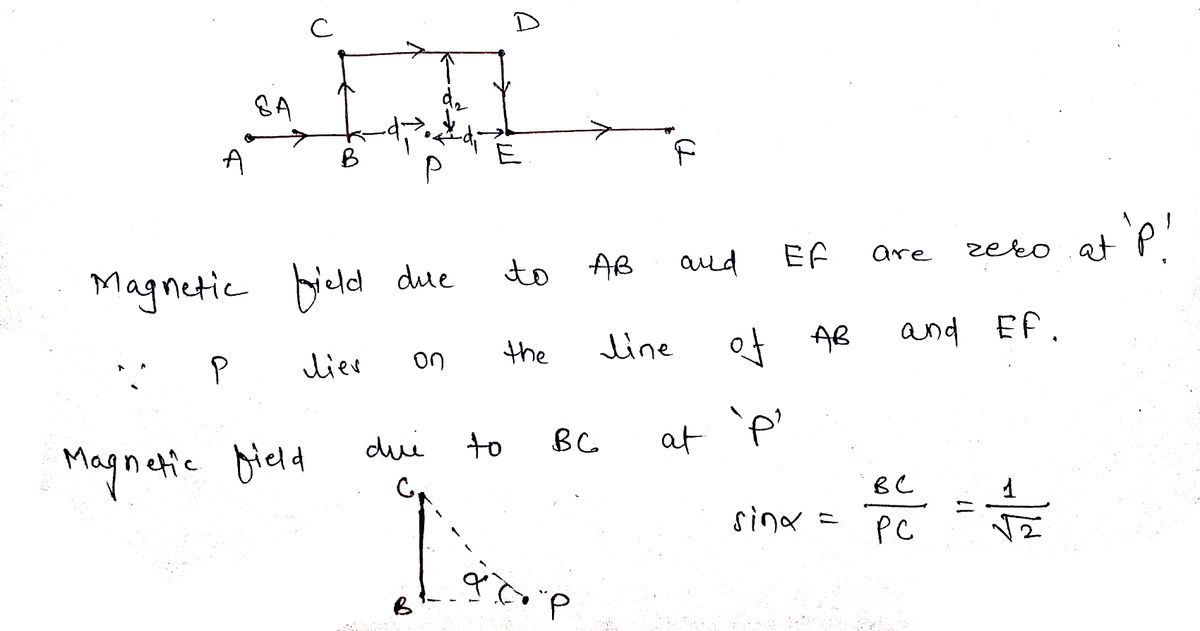 C D
8A
d₂
d₁ d₁
A B P E F
Magnetic field due to AB and EF are zero at 'P'.
∵ P lies on the line of AB and EF.
Magnetic field due to BC at 'P'
C
sinα = BC/PC = 1/√2
α
B P